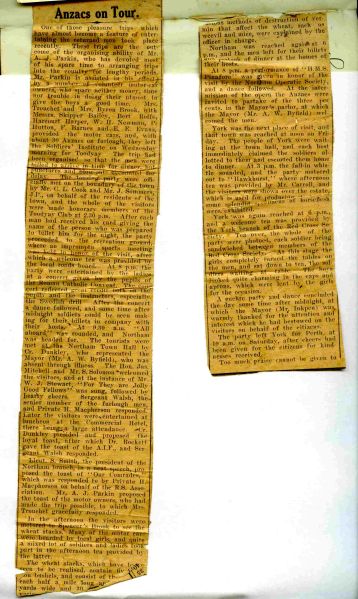 Anzacs on Tour.
One of those pleasure trips which
have almost become a feature of enter-
taining the returned men took place
recently. These trips are the out-
come of the organising ability of Mr.
A. J. Parkin, who has devoted most
of his spare time to arranging trips
into the country for lengthy periods.
Mr. Parkin is assisted in his efforts
by a number of generous motor
owners, who spare neither money, time
nor trouble in doing their share to
give the boys a good time. Mrs.
Trouchet and Mrs. Byers Brook, with
Messrs. Skipper Bailey, Bert Bolt,
Harcourt Harper, W. H. Newman, F.
Hutton, F. Barnes and E. E. Evans
provided the motor cars, and, with
about 30 Anzacs on furlough, they left
the Soldiers' Institute on Wednesday
morning for Toodyay. The trip had
been organised so that the cars were
punctures and blow-outs accounted for
links. The leading party were offi-
cially met on the boundary of the town
by Mr. C. L. Cook and Mr. J. Somers,
J.P., on behalf of the residents of the
town, and the whole of the visitors
were made honorary members of the
Toodyay Club at 2.30 p.m. After each
man had received his card giving the
name of the person who was prepared
to billet him for the night, the party
proceeded to the recreation ground,
where an impromptu sports meeting
was held in honor of the visit, after
which a welcome tea was provided by
the local sports board. At 8 p.m. the
party were entertained by the ladies
in the Roman Catholic Convent. The
and the instructors, especially
the Swedish drill. After the concert
a dance followed, and some time after
midnight soldiers could be seen mak-
ing for their billets in company with
their hosts. At 9.30 a.m. "all
aboard" was sounded, and Northam
was headed for. The tourists were
met at the Northam Town Hall by
Cr. Dunkley, who represented the
Mayor (Mr. A. W. Byfield), who was
absent through illness. The Hon. Jas.
Mitchell and Mr. S. Solomon welcomed
the visitors, and at the instance of Mr.
W. J. Stewart, "For They are Jolly
Good Fellows" was sung, followed by
hearty cheers. Sergeant Walsh, the
senior member of the furlough men,
and Private H. Macpherson responded.
Later the visitors were entertained at
luncheon at the Commercial Hotel,
there being a large attendance. Cr.
Dunkley presided and proposed the
loyal toast, after which Dr. Rockett
gave the toast of the A.I.F. and Ser-
geant Walsh responded.
Lieut. S. Smith, the president of the
Northam branch, in a neat speech, pro-
posed the toast of "Our Comrades,"
which was responded to by Private H.
Macpherson on behalf of the R.S. Asso-
ciation. Mr. A. J. Parkin proposed
the toast of the motor owners, who had
made the trip possible, to which Mrs.
Trouchet gracefully responded.
In the afternoon the visitors were
motored to Spencer's Brook to see the
wheat stacks. Many of the motor cars
were boarded by local girls, and quite
a mixed lot of soldiers and ladies took
part in the afternoon tea provided by
the latter.
The wheat stacks, which have to be
seen to be realised, contain
lion bushels, and consist of
each half a mile long and
yards wide and 20
various methods of destruction of ver-
min that affect the wheat, such as
weevil and mice, were explained by the
officer in charge.
Northam was reached again at 6
p.m., and the men left for their billets
to partake of dinner at the homes of
their hosts.
At 8 p.m. a performance of "H.M.S.
Pinafore" was given in honor of the
visit by the Northam Operatic Society,
and a dance followed. At the inter-
mission of the opera the Anzacs were
invited to partake of the three per
cents. in the Mayor's parlor, at which
the Mayor (Mr. A. W. Byfield) wel-
comed the men.
York was the next place of visit, and
that town was reached at noon on Fri-
day. The people of York were wait-
ing at the town hall, and each one
immediately claimed the soldiers al-
lotted to them and escorted them home
to dinner. At 3 p.m. the fall-in whis-
tle sounded, and the party motored
out to "Hawkhurst," where afternoon
tea was provided by Mr. Carroll, and
the visitors were shown over the estate,
which is used for producing
some splendid specimens of horseflesh
were exhibited.
York was again reached at 6 p.m.,
and a welcome tea was provided by
the York branch of the Red Cross So-
ciety. Just over, the whole of the
party were photoed, each soldier being
sandwiched between members of the
Red Cross Society. At this stage the
girls completely turned the tables on
the men, and sat down to tea, the sol-
diers waiting on them. The soldiers
looked quite charming in the caps and
aprons, which were lent by the girls
for the occasion.
A euchre party and dance concluded
the day some time after midnight, at
which the Mayor (Mr. Inkpen) was
warmly thanked for the attention and
interest which he had bestowed on the
visitors on behalf of the citizens.
The party left York for Perth at
10 a.m. on Saturday, after cheers had
been given for the citizens for kind-
nesses received.
Too much praise cannot be given to